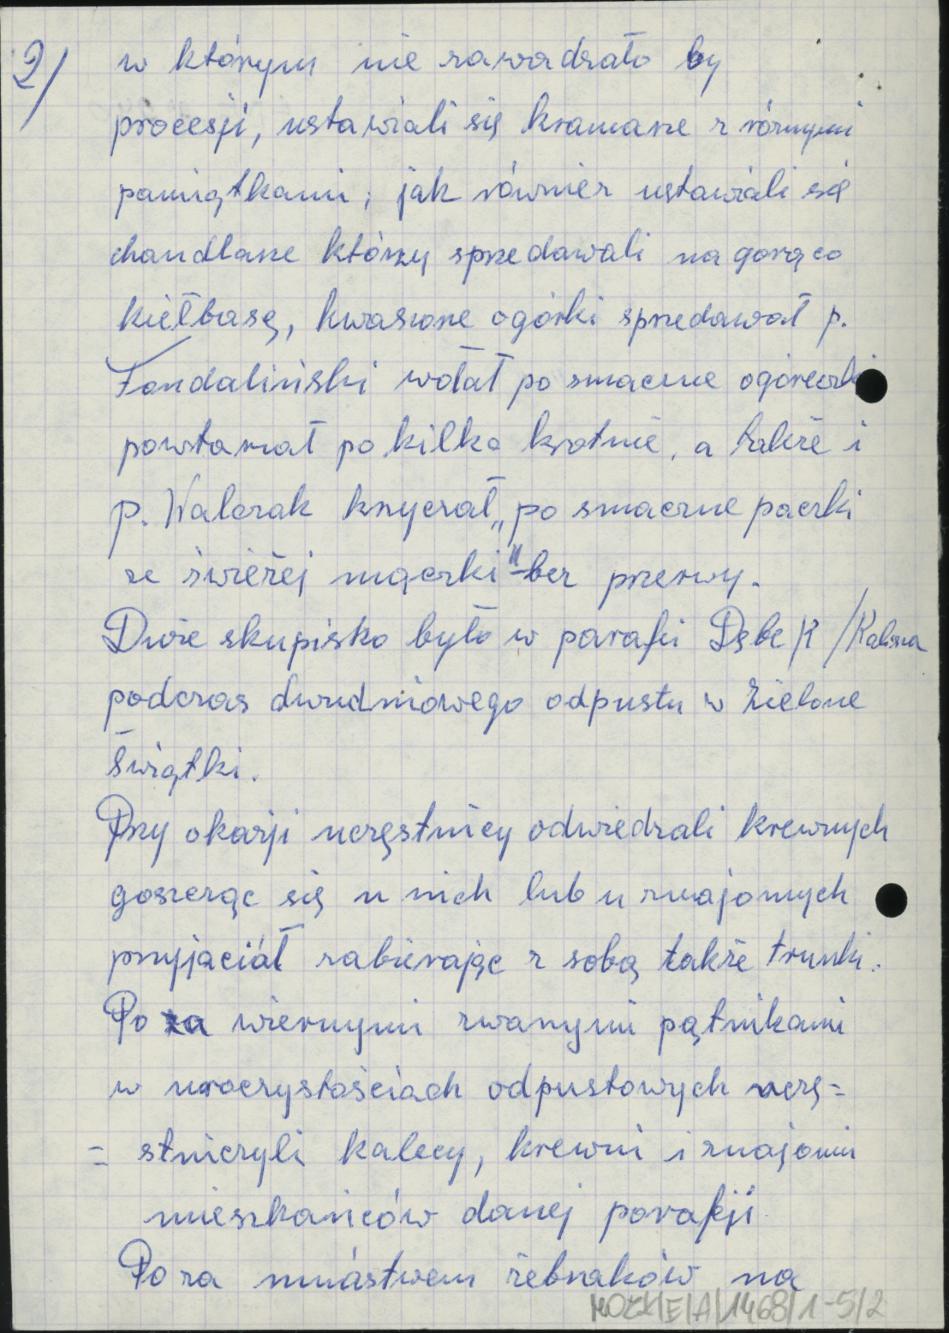 2/ w którym nie zawadzało by
procesji, ustawiali się kramarze z różnymi
pamiątkami; jak również ustawiali się
chandlarze którzy sprzedawali na gorąco
kiełbasę, kwaszone ogórki sprzedawał p.
Fondaliński wołał po smaczne ogóreczki
powtarzał po kilka krotnie, a także i
p. Walczak krzyczał „po smaczne paczki
ze świeżej mączki" bez przerwy.
Duże skupisko było w parafi Dębe K/Kalisza
podczas dwudniowego odpustu w Zielone
Świątki.
Przy okazji uczęstnicy odwiedzali krewnych
goszcząc się u nich lub u znajomych
przyjaciół zabierając z sobą także trunki.
Po za wiernymi zwanymi pątnikami
w uroczystościach odpustowych uczę=
= stniczyli kalecy, krewni i znajomi
mieszkańców danej parafji
Po za mnóstwem żebraków na
MOZK/E/A/1468/1-5/2